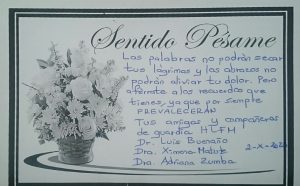 Sentido Pésame
Las palabras no podrán secar
tus lágrimas y los abrazos no
podrán aliviar tu dolor. Pero
aférrate a los recuerdos que
tienes, ya que por siempre
PREVALECERÁN
Tus amigas y compañeras
de guardia HLFM
Dr. Luis Buenaño
Dra. Ximena Matute
Dra. Adriana Zumba